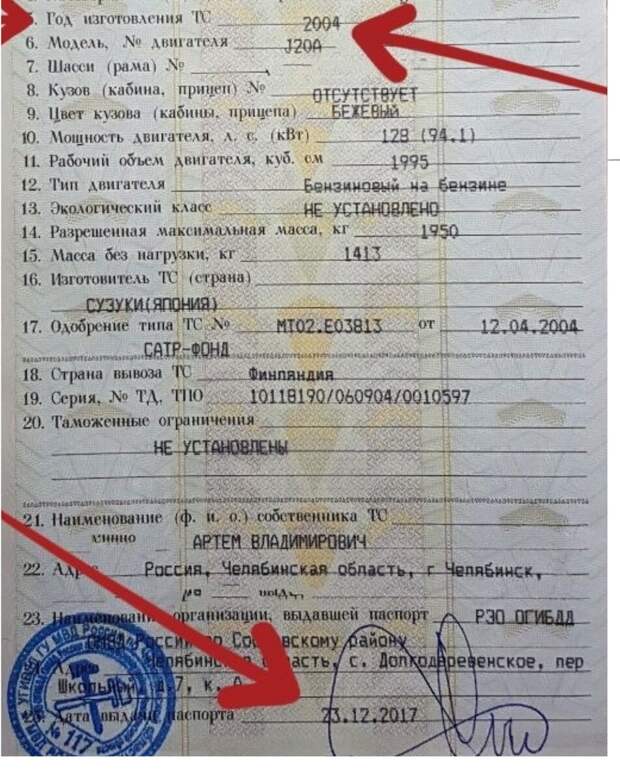 5. Год изготовления ТС 2004
6. Модель, № двигателя J20A
7. Шасси (рама) №
8. Кузов (кабина, прицеп) № ОТСУТСТВУЕТ
9. Цвет кузова (кабины, прицепа) БЕЖЕВЫЙ
10. Мощность двигателя, л. с. (кВт) 128 (94.1)
11. Рабочий объем двигателя, куб. см 1995
12. Тип двигателя Бензиновый на бензине
13. Экологический класс НЕ УСТАНОВЛЕНО
14. Разрешенная максимальная масса, кг 1950
15. Масса без нагрузки, кг 1413
16. Изготовитель ТС (страна)
СУЗУКИ(ЯПОНИЯ)
17. Одобрение типа ТС № МТ02.Е03813 от 12.04.2004
САТР-ФОНД
18. Страна вывоза ТС Финляндия
19. Серия, № ТД, ТПО 10118190/060904/0010597
20. Таможенные ограничения
НЕ УСТАНОВЛЕНЫ
21. Наименование (ф. и. о.) собственника ТС
АРТЕМ ВЛАДИМИРОВИЧ
22. Адрес Россия, Челябинская область, г Челябинск,
23. Наименование организации, выдавшей паспорт РЭО ОГИБДД
России по Сосновскому району
Адрес Челябинская область, с. Долгодеревенское, пер
Школьный, д.7, к. А
Дата выдачи паспорта 23.12.2017
№ 117